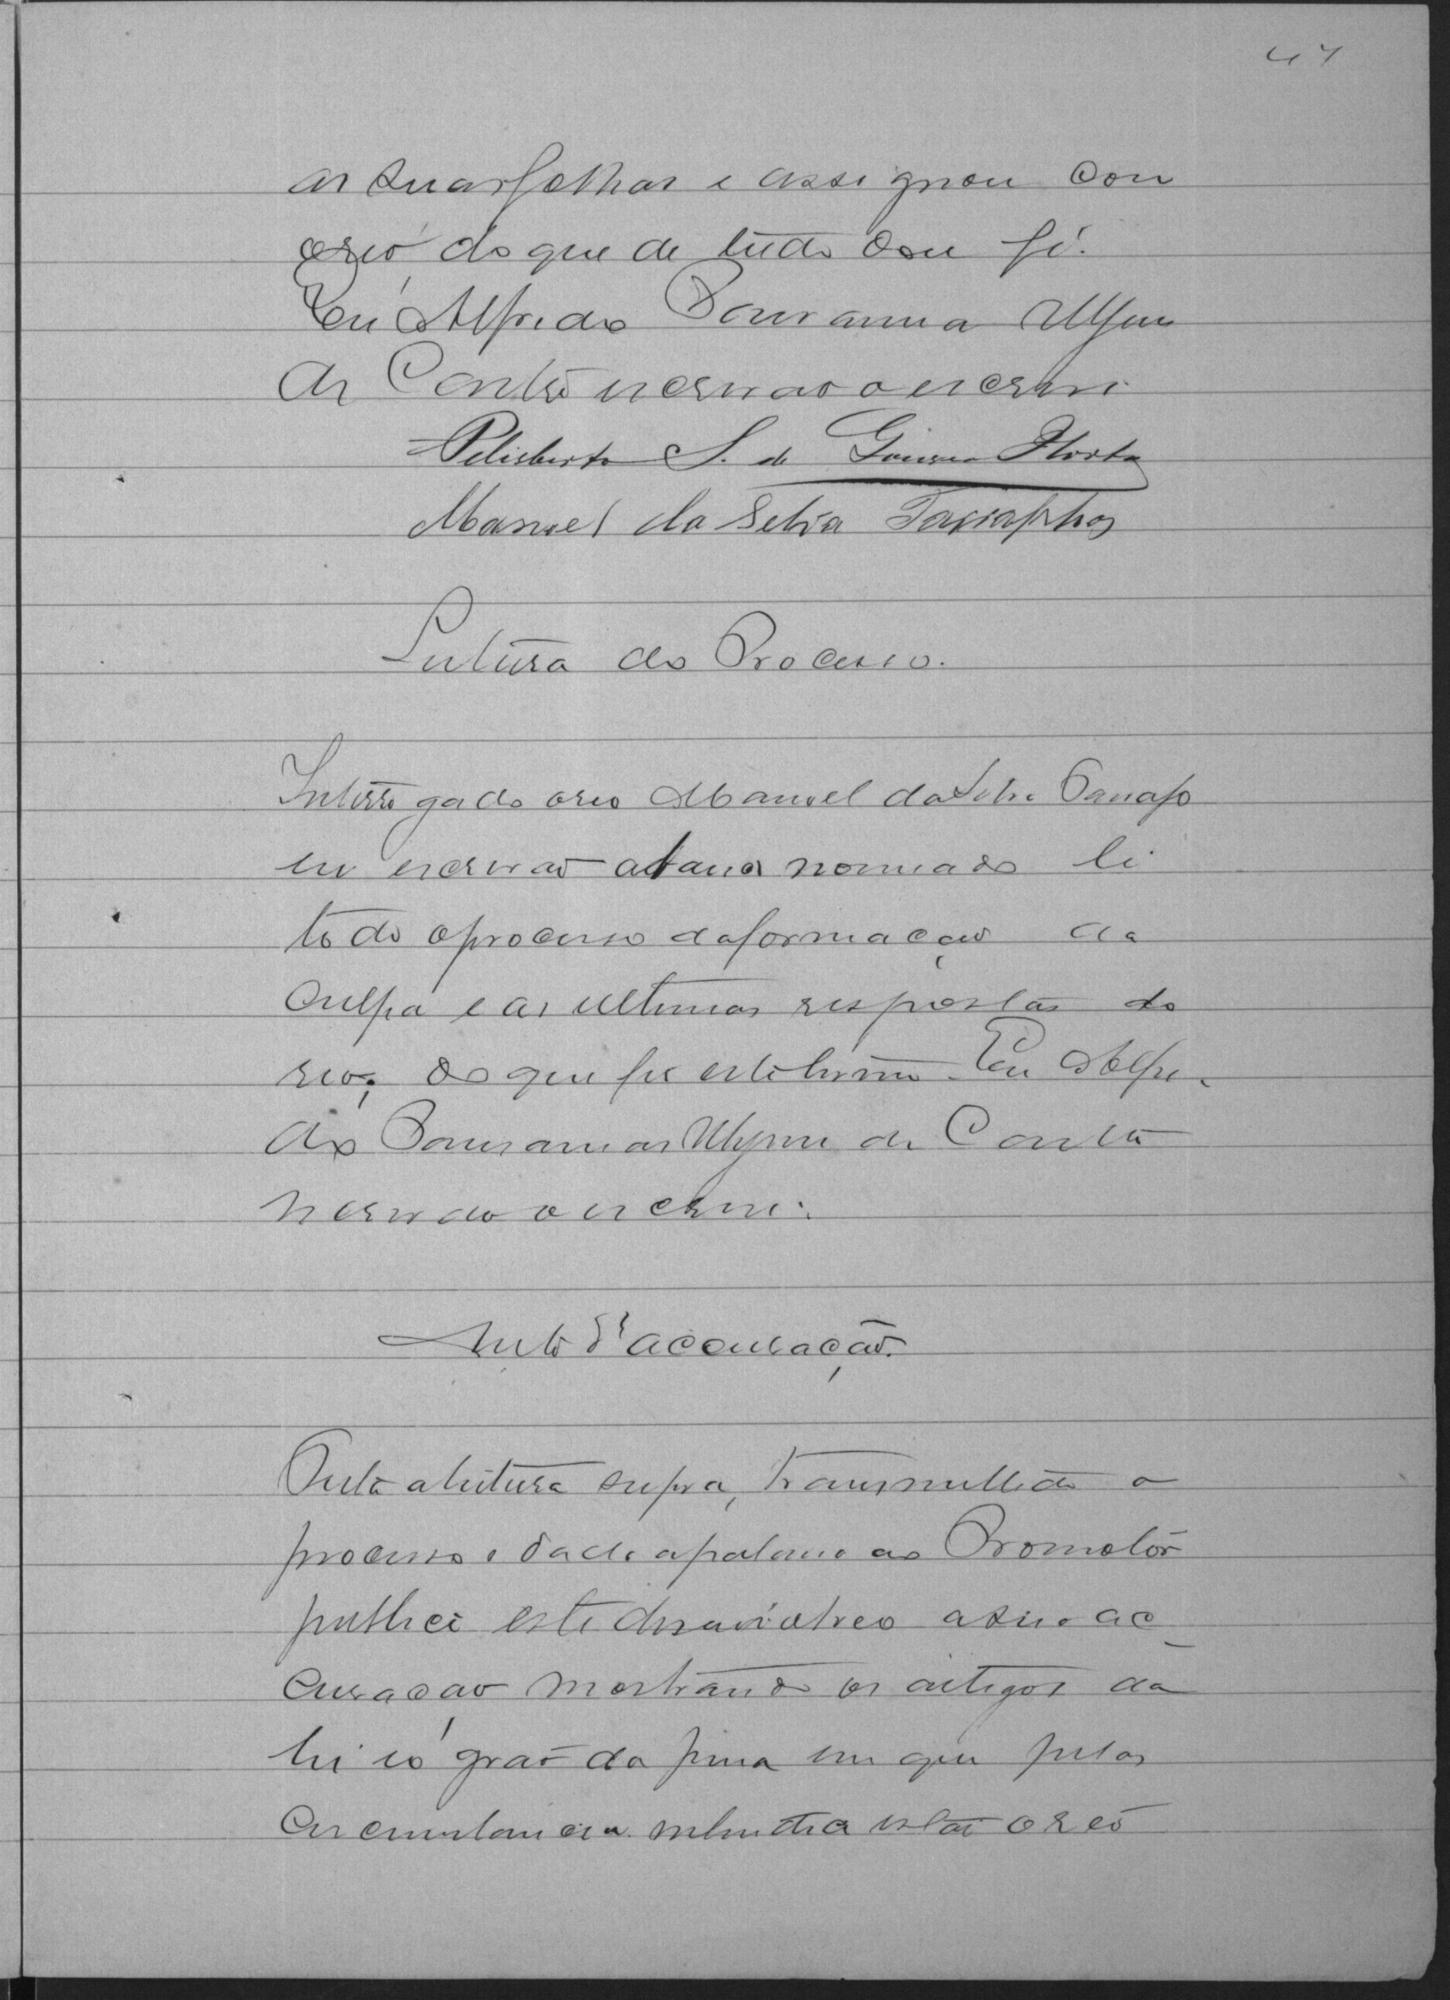 47
as suas folhas e assignou com
o reo do que de tudo dou fé.
Eu Alfredo Pausanias
de escrivão o escrevi.
Felisberto S. de Gouvea Horta
Manoel da Silva
Leitura do Processo.
Interrogado o reo Manoel da Silva
eu escrivão abaixo nomeado li
todo o processo da formação da
culpa e as ultimas respostas do
reo; do que fiz este termo. Eu Alfre-
do Pausanias de
escrivão o escrevi.
Auto d'accusação.
Feita a leitura supra, transmittido o
processo e dada a palavra ao Promotor
publico este desenvolveo a sua ac-
cusação mostrando os artigos da
lei e o gráo da pena em que pelas
circumstancias entendia estar o reo